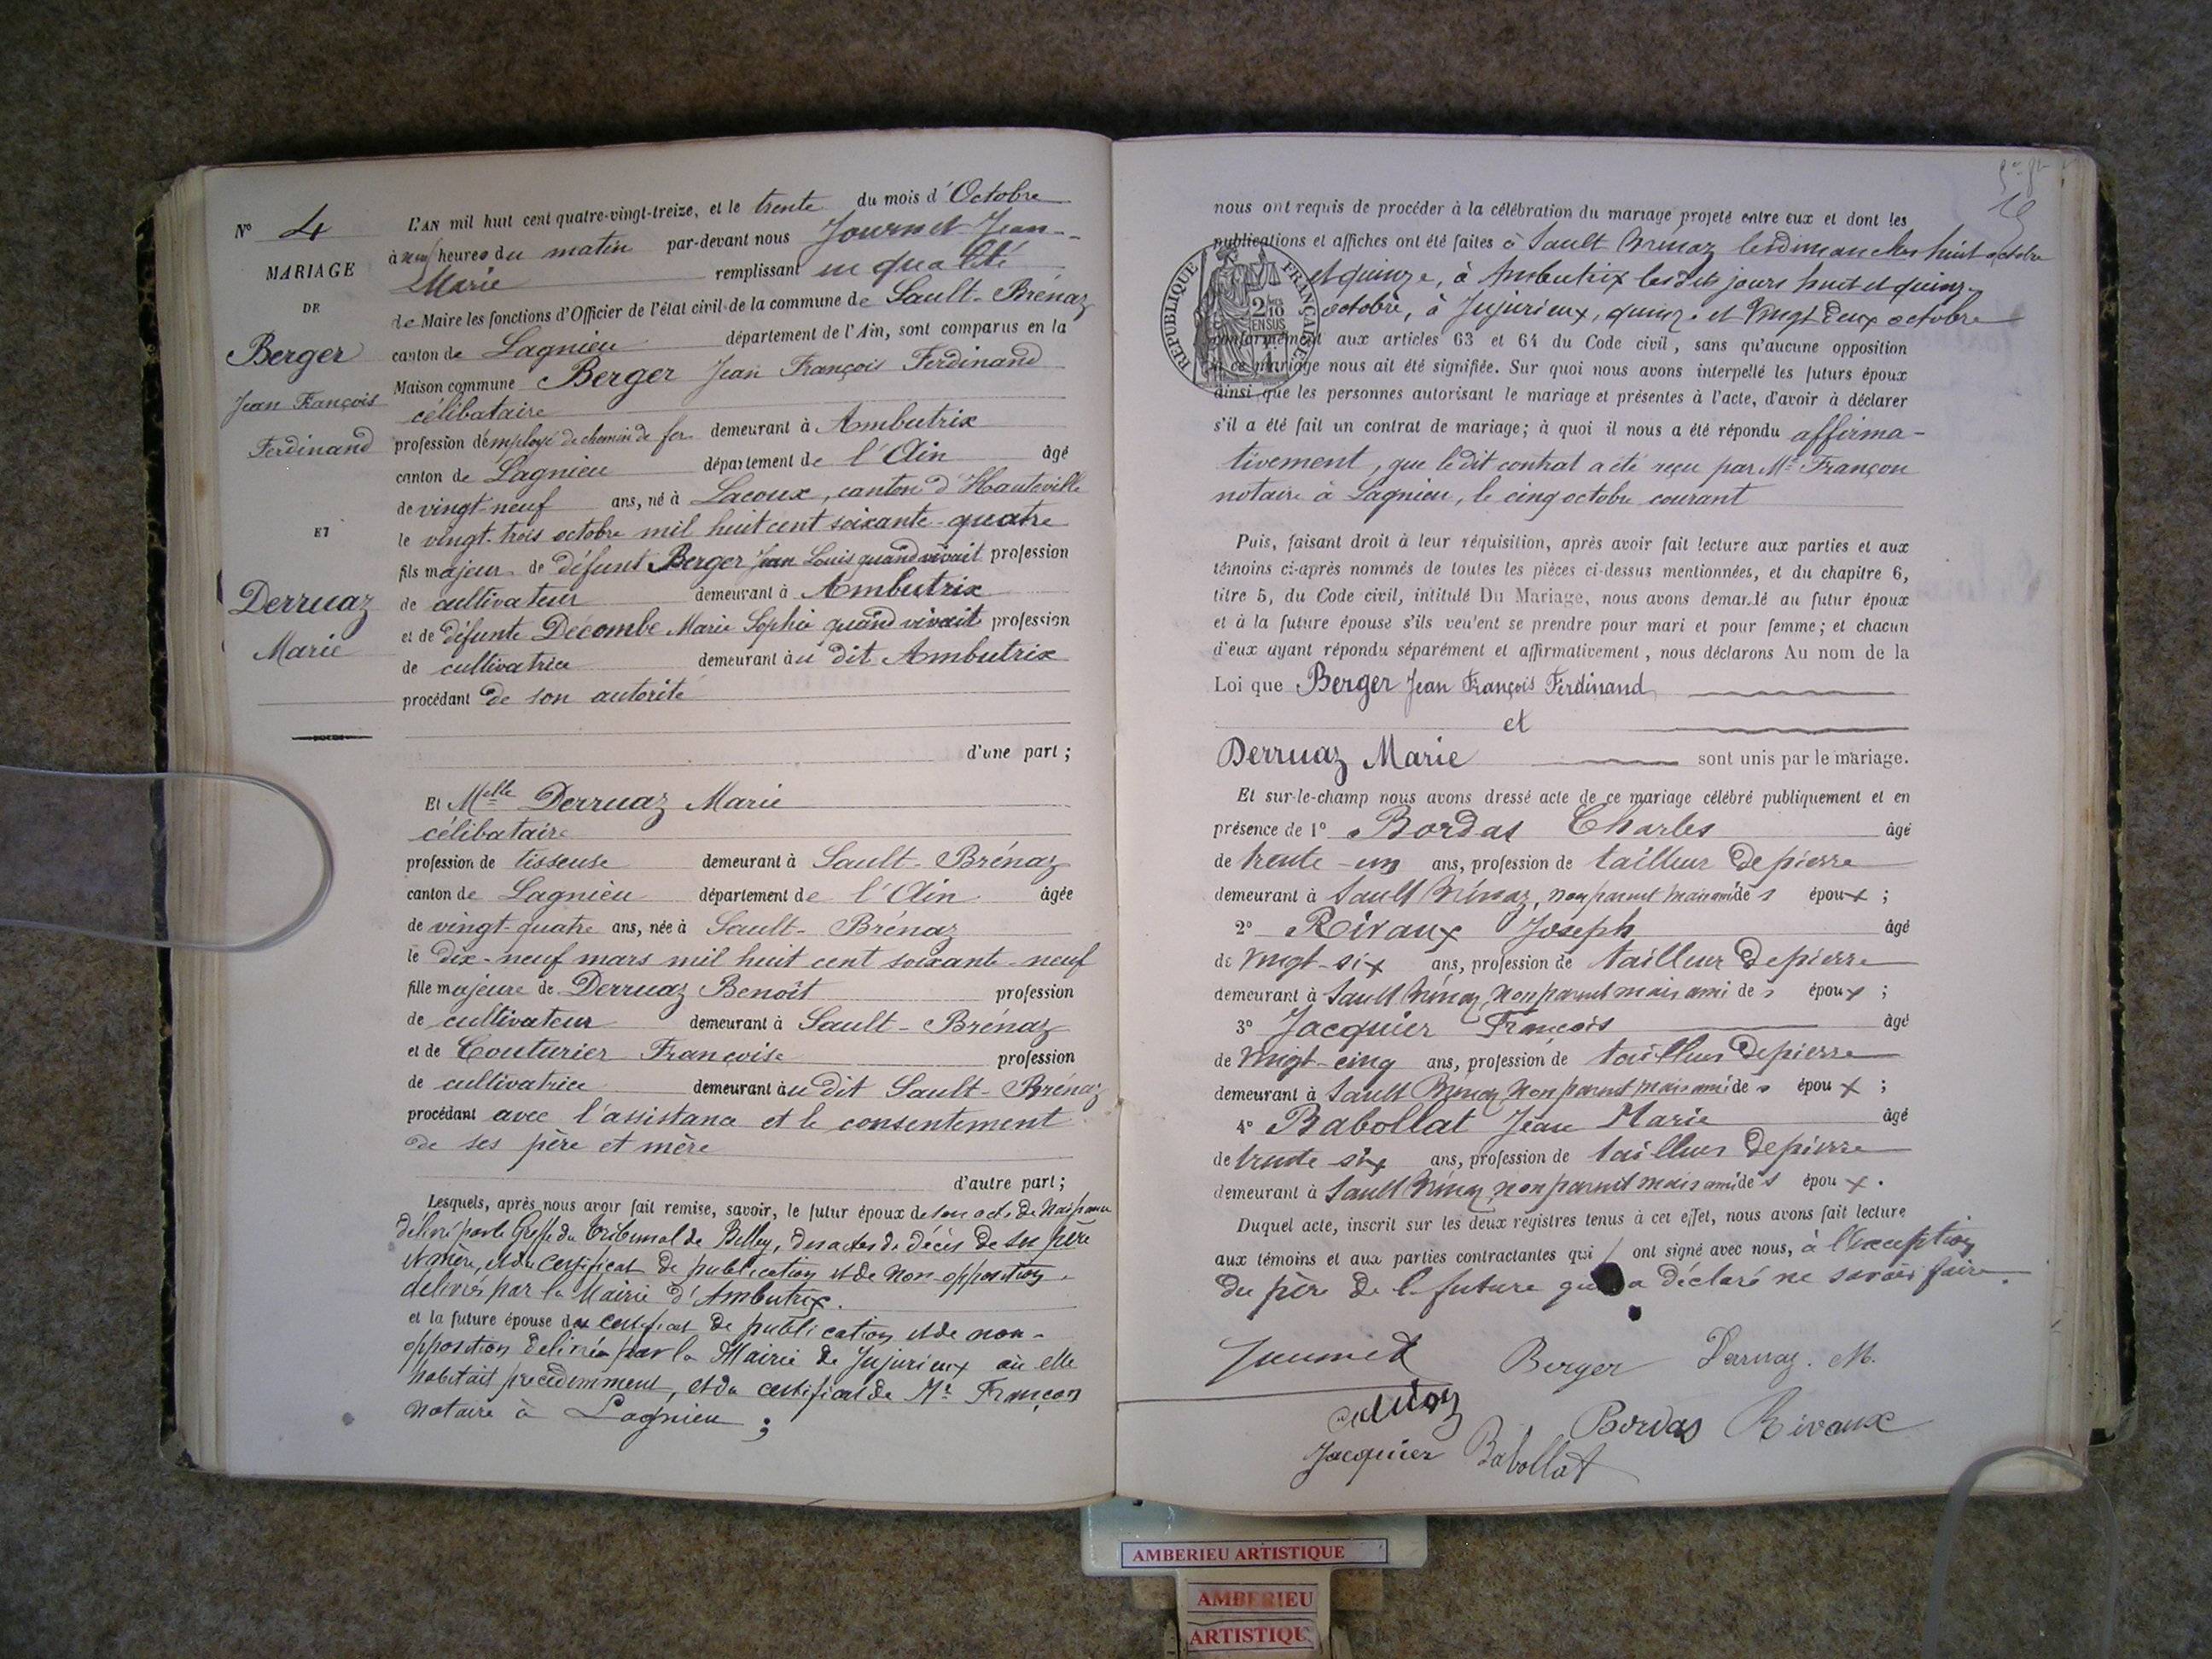 N° 4
MARIAGE
DE
Berger
Jean François
Ferdinand
ET
Derruaz
Marie
L'AN mil huit cent quatre-vingt-treize, et le trente du mois d'Octobre
à neuf heures du matin par-devant nous Journet Jean-
Marie remplissant en qualité
de Maire les fonctions d'Officier de l'état civil de la commune de Sault-Brénaz
canton de Lagnieu département de l'Ain, sont comparus en la
Maison commune Berger Jean François Ferdinand
célibataire
profession d'employé de chemin de fer demeurant à Ambutrix
canton de Lagnieu département de l'Ain âgé
de vingt-neuf ans, né à Lacoux, canton d'Hauteville
le vingt-trois octobre mil huit cent soixante-quatre
fils majeur de défunt Berger Jean Louis quand vivait profession
de cultivateur demeurant à Ambutrix
et de défunte Décombe Marie Sophie quand vivait profession
de cultivatrice demeurant au dit Ambutrix
procédant de son autorité
d'une part ;
Et Melle Derruaz Marie
célibataire
profession de tisseuse demeurant à Sault-Brénaz
canton de Lagnieu département de l'Ain âgée
de vingt-quatre ans, née à Sault-Brénaz
le dix-neuf mars mil huit cent soixante-neuf
fille majeure de Derruaz Benoît profession
de cultivateur demeurant à Sault-Brénaz
et de Couturier Françoise profession
de cultivatrice demeurant au dit Sault-Brénaz
procédant avec l'assistance et le consentement
de ses père et mère
d'autre part ;
Lesquels, après nous avoir fait remise, savoir, le futur époux de son acte de Naissance
délivré par le Greffe du Tribunal de Belley, des actes de décès de ses père
et mère, et du certificat de publication et de non-opposition
délivrés par la Mairie d'Ambutrix.
et la future épouse du certificat de publication et de non-
opposition délivré par la Mairie de Jujurieux où elle
habitait précédemment, et du certificat de Me Françon
notaire à Lagnieu ;
nous ont requis de procéder à la célébration du mariage projeté entre eux et dont les
publications et affiches ont été faites à Sault Brénaz les dimanches huit octobre
et quinze, à Ambutrix les dits jours huit et quinze
octobre, à Jujurieux, quinze et vingt deux octobre
conformément aux articles 63 et 64 du Code civil, sans qu'aucune opposition
à ce mariage nous ait été signifiée. Sur quoi nous avons interpellé les futurs époux
ainsi que les personnes autorisant le mariage et présentes à l'acte, d'avoir à déclarer
s'il a été fait un contrat de mariage ; à quoi il nous a été répondu affirma-
tivement, que le dit contrat a été reçu par Me Françon
notaire à Lagnieu, le cinq octobre courant
RÉPUBLIQUE FRANÇAISE
2/10
EN SUS
Puis, faisant droit à leur réquisition, après avoir fait lecture aux parties et aux
témoins ci-après nommés de toutes les pièces ci-dessus mentionnées, et du chapitre 6,
titre 5, du Code civil, intitulé Du Mariage, nous avons demandé au futur époux
et à la future épouse s'ils veulent se prendre pour mari et pour femme ; et chacun
d'eux ayant répondu séparément et affirmativement, nous déclarons Au nom de la
Loi que Berger Jean François Ferdinand
et
Derruaz Marie sont unis par le mariage.
Et sur-le-champ nous avons dressé acte de ce mariage célébré publiquement et en
présence de 1° Bordas Charles âgé
de trente-un ans, profession de tailleur de pierre
demeurant à Sault Brénaz, non parent mais ami des époux ;
2° Rivaux Joseph âgé
de vingt-six ans, profession de tailleur de pierre
demeurant à Sault Brénaz, non parent mais ami des époux ;
3° Jacquier François âgé
de vingt-cinq ans, profession de tailleur de pierre
demeurant à Sault Brénaz non parent mais ami des époux ;
4° Babollat Jean Marie âgé
de trente six ans, profession de tailleur de pierre
demeurant à Sault Brénaz, non parent mais ami des époux.
Duquel acte, inscrit sur les deux registres tenus à cet effet, nous avons fait lecture
aux témoins et aux parties contractantes qui ont signé avec nous, à l'exception
du père de la future qui a déclaré ne savoir faire.
Journet Berger Derruaz. M.
Bordas Rivaux
Jacquier Babollat
AMBERIEU ARTISTIQUE
AMBERIEU
ARTISTIQUE